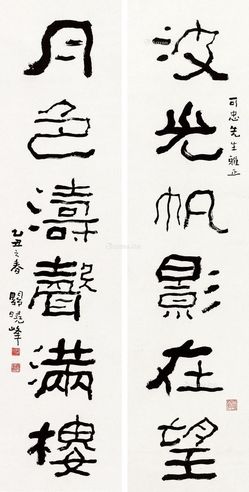 可忠先生雅正
波光帆影在望
月色濤聲滿樓
乙丑之春
關曉峰